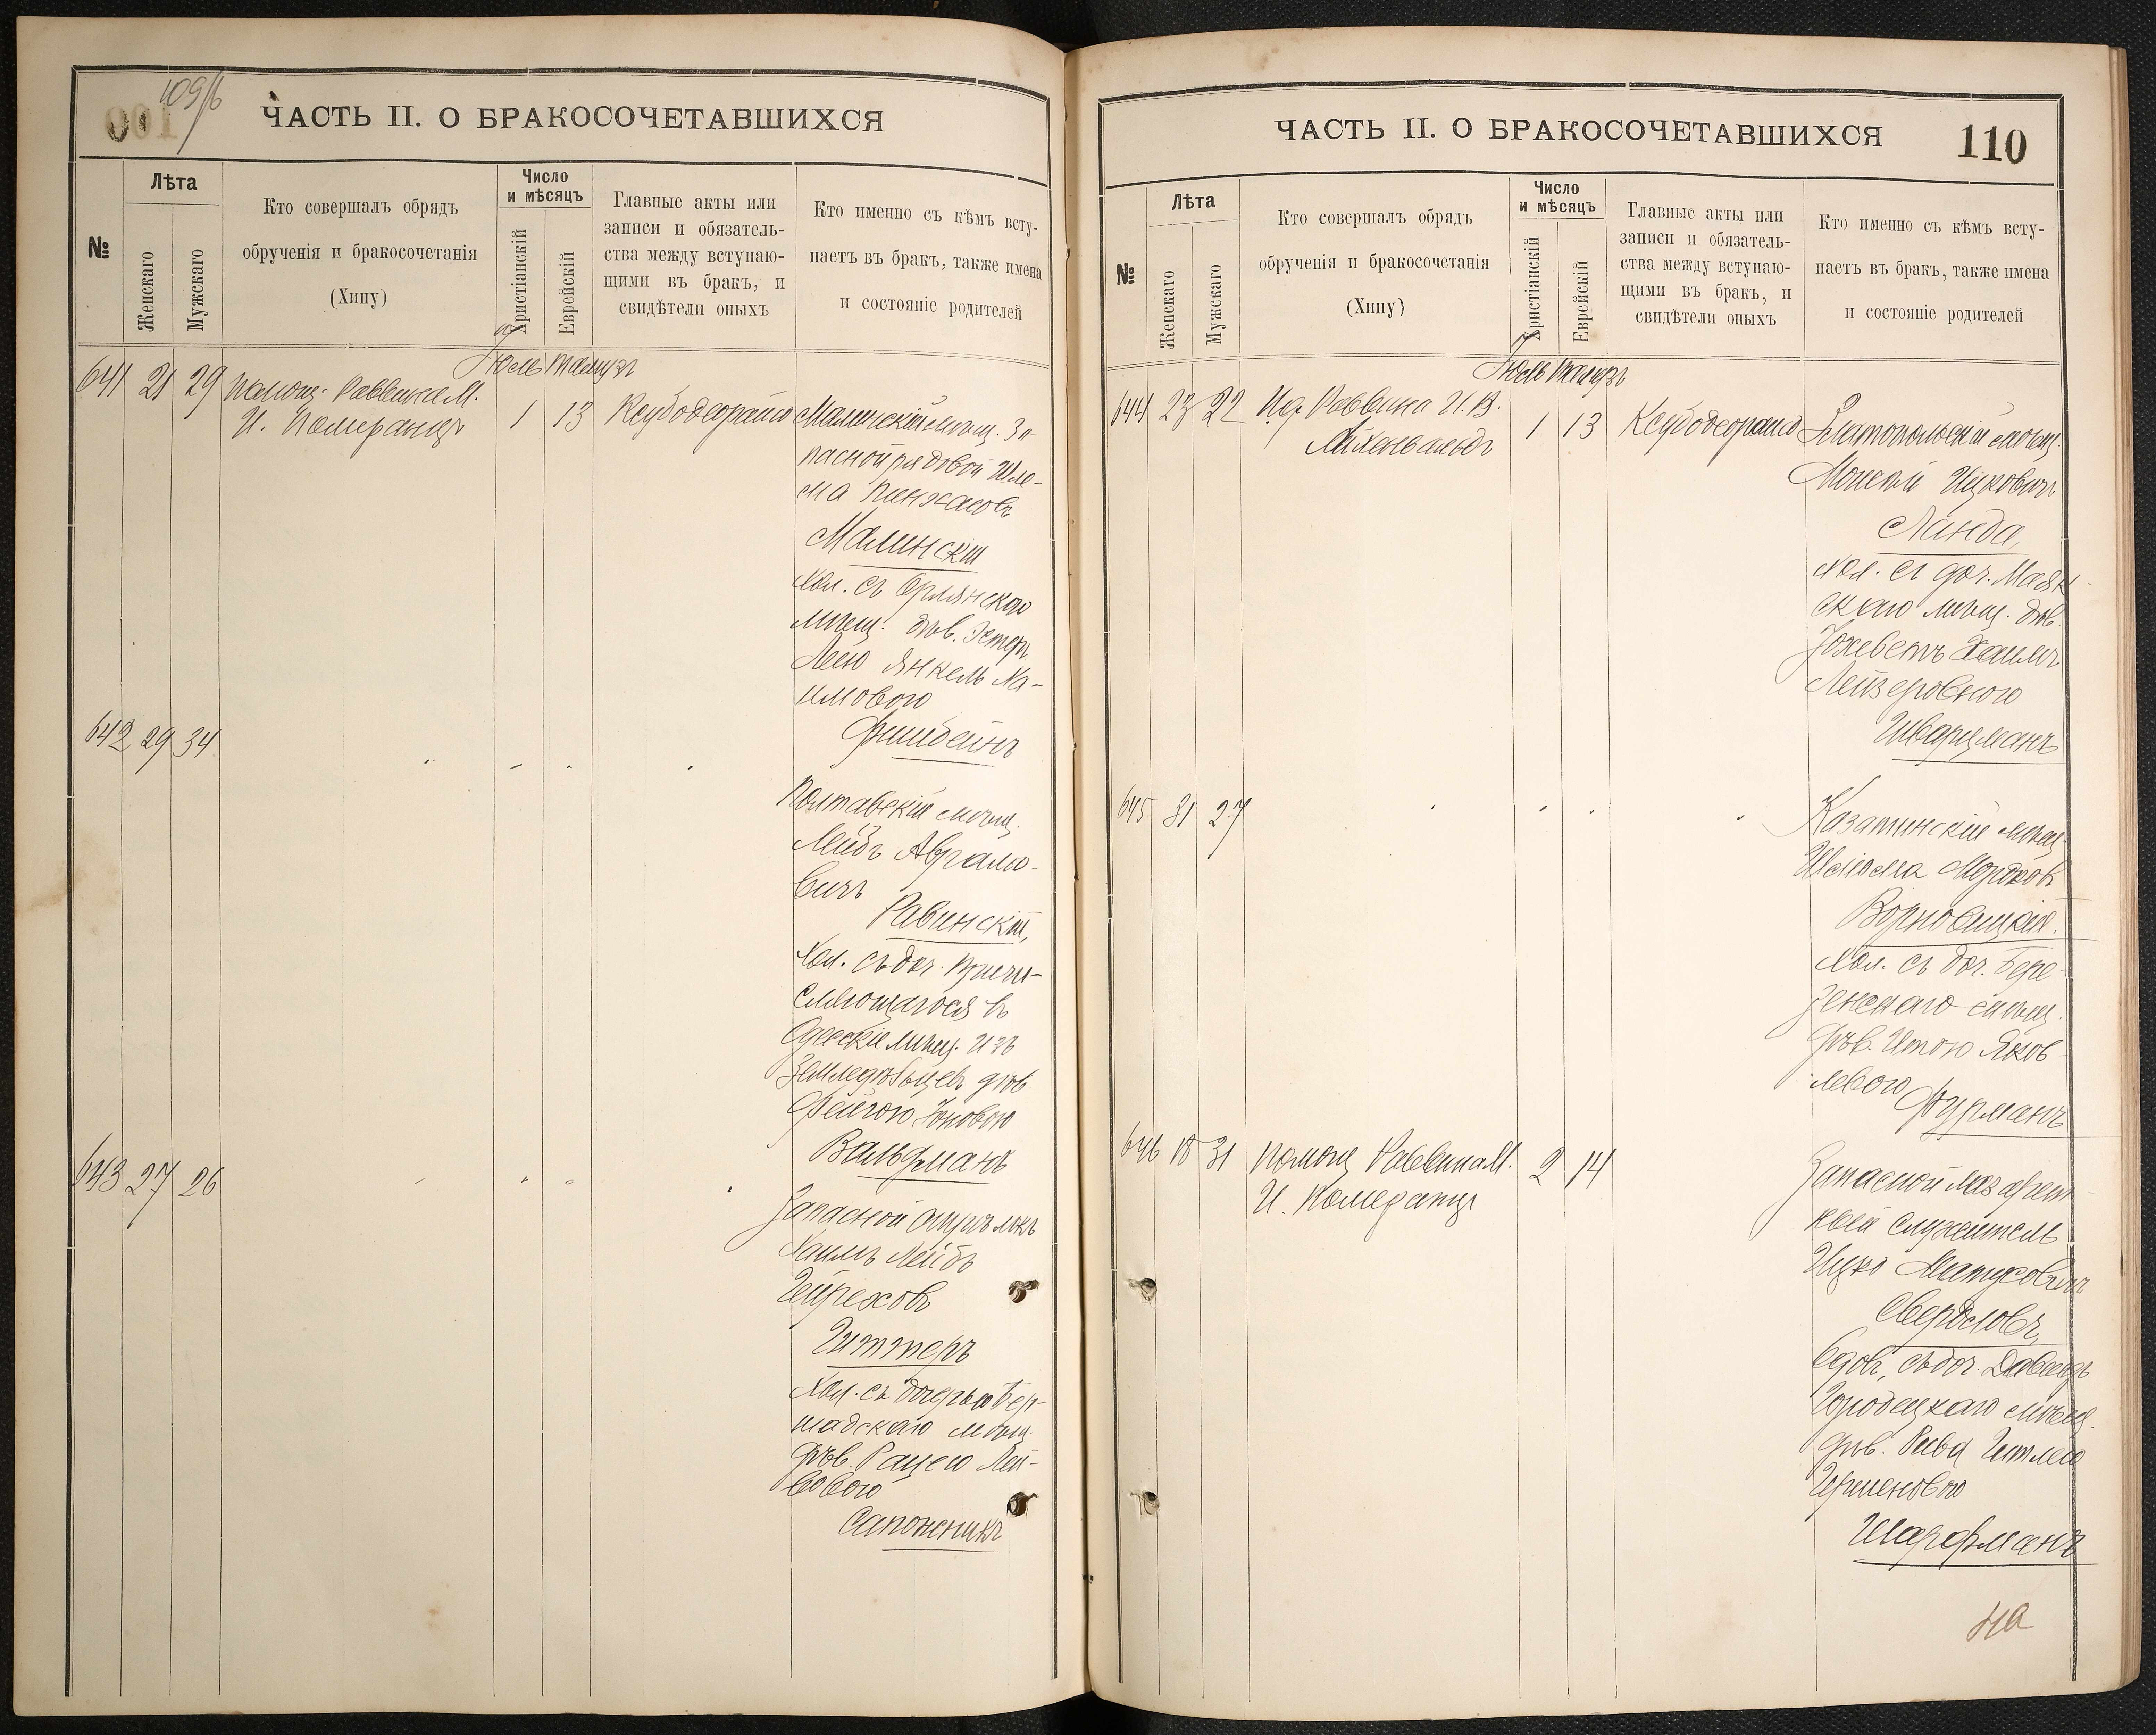 109/6
ЧАСТЬ II. О БРАКОСОЧЕТАВШИХСЯ
№
Лѣта
Женскаго
Мужскаго
Кто совершалъ обрядъ
обрученія и бракосочетанія
(Хипу)
Число
и мѣсяцъ
Христіанскій
Еврейскій
Главные акты или
записи и обязатель-
ства между вступаю-
щими въ бракъ, и
свидѣтели оныхъ
Кто именно съ кѣмъ всту-
паетъ въ бракъ, также имена
и состояніе родителей
Іюль Тамузъ
641 21 29 Помощ. Раввина М.
И. Померанцъ
1 13 Ксубодеорайсо
Малинскій мѣщ. За-
пасной рядовой Шле-
ма Пинхасовъ
Малинскій
хол. съ Орлянскаго
мѣщ. дѣв. Эстеръ
Леею Янкель Ха-
имовою
Фишбейнъ
642 29 34
Полтавскій мѣщ.
Лейбъ Абрамо-
вичъ
Равинскій,
хол. съ доч. причи-
сляющагося въ
Одесскіе мѣщ. изъ
земледѣльцевъ дѣв.
Фейгою Іоновою
Вальфманъ
643 27 26
Запасной стрѣлокъ
Хаимъ Лейбъ
Гиттеръ
хол. съ дочерью Бер-
шадскаго мѣщ.
дѣв. Рацею Лей-
бовою
Сапожникъ
ЧАСТЬ II. О БРАКОСОЧЕТАВШИХСЯ
110
№
Лѣта
Женскаго
Мужскаго
Кто совершалъ обрядъ
обрученія и бракосочетанія
(Хипу)
Число
и мѣсяцъ
Христіанскій
Еврейскій
Главные акты или
записи и обязатель-
ства между вступаю-
щими въ бракъ, и
свидѣтели оныхъ
Кто именно съ кѣмъ всту-
паетъ въ бракъ, также имена
и состояніе родителей
Іюль Тамузъ
644 23 22 И.д. Раввина И. В.
Айхенвальдъ
1 13 Ксубодеорайсо
Златопольскій мѣщ.
Моисей Ицковичъ
Ланда,
хол. съ доч. Маяк-
скаго мѣщ. дѣв.
Іохеветъ Хаимъ
Лейзеровною
Шварцманъ
645 31 27
Казатинскій мѣщ.
Шлема Мордков.
Ворновицкій.
хол. съ доч. Бере-
зенскаго мѣщ.
дѣв. Итою Яков-
левою
Фурманъ
646 18 31 Помощ Раввина М.
И. Померанцъ
2 14
Запасной лазарет-
ный служитель
Ицко Матусовичъ
Свердловъ,
вдов., съ доч. Давидъ
Городецкаго мѣщ.
дѣв. Рива Гитлею
Гершеновою
Шарфманъ